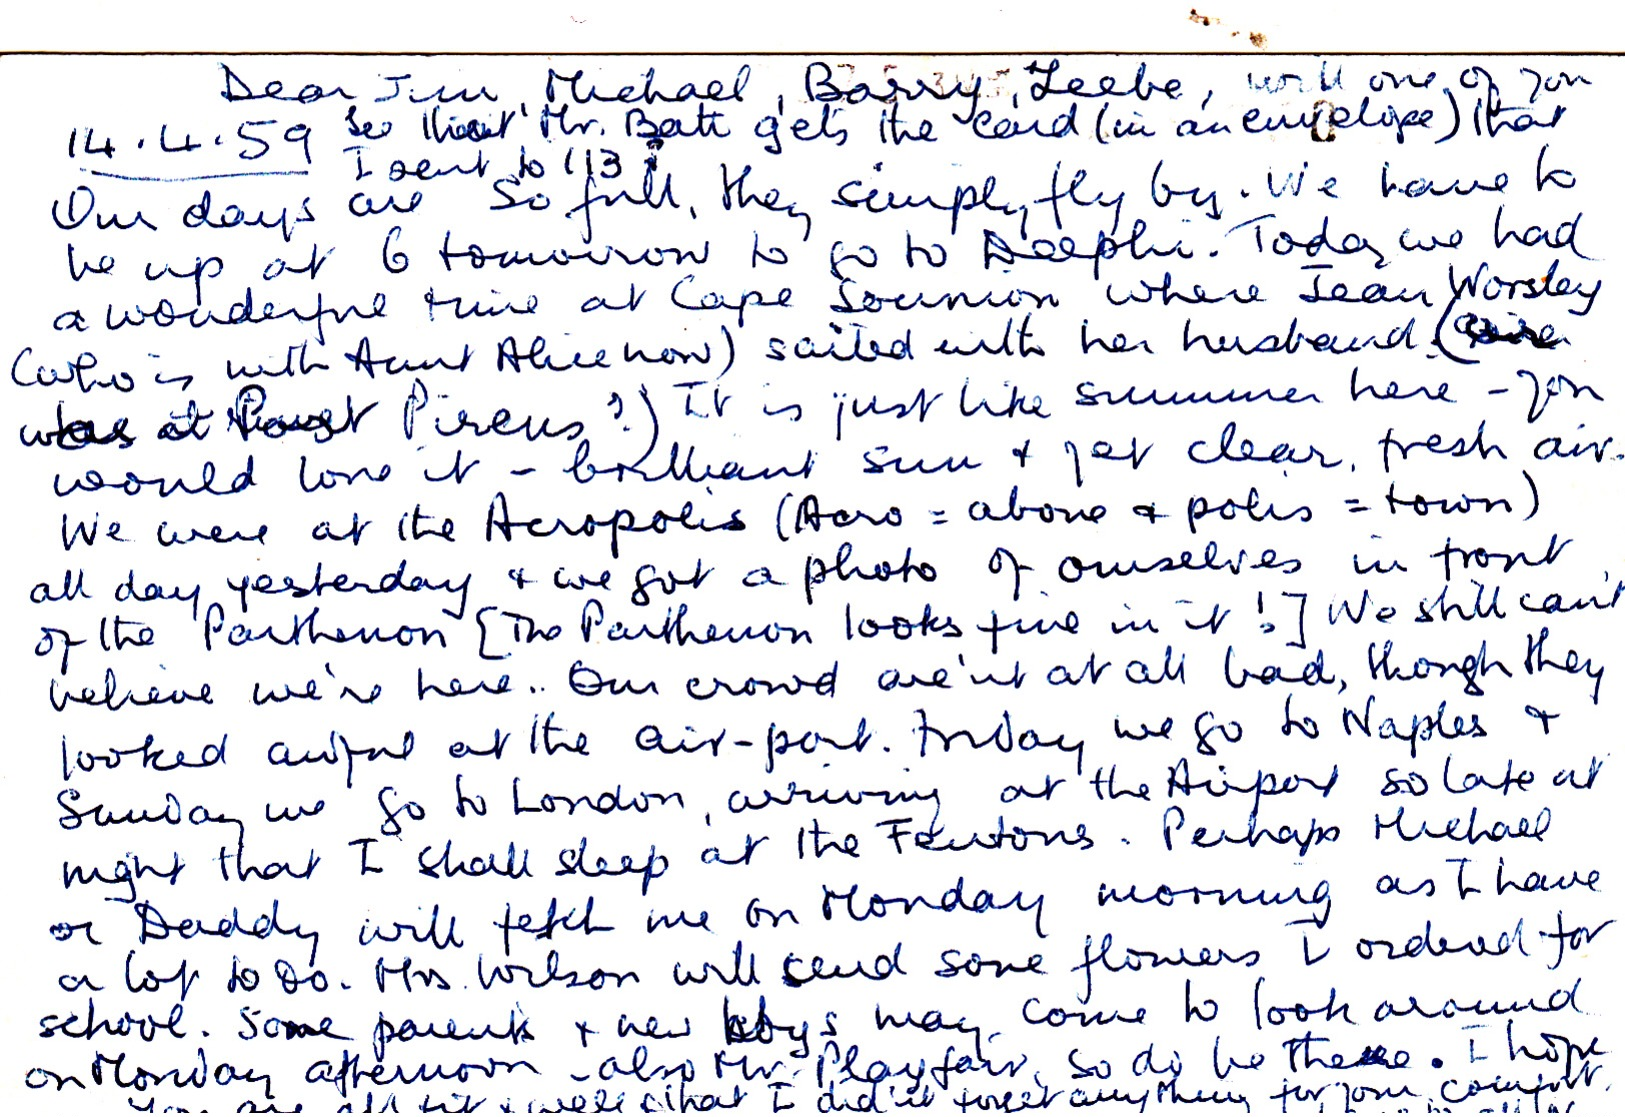 Dear Jim, Michael, Barry, Leebe, will one of you
14.4.59 see that Mr. Batt gets the card (in an envelope) that
I sent to 113
Our days are so full, they simply fly by. We have to
be up at 6 tomorrow to go to Delphi. Today we had
a wonderful time at Cape Sounion where Jean Worsley
(who is with Aunt Alice now) sailed with her husband. (
was at Port Pireus?) It is just like summer here - you
would love it - brilliant sun & yet clear, fresh air.
We were at the Acropolis (Acro = above & polis = town)
all day yesterday & we got a photo of ourselves in front
of the Parthenon [The Parthenon looks fine in it!] We still can't
believe we're here.. Our crowd are'nt at all bad, though they
looked awful at the air-port. Friday we go to Naples &
Sunday we go to London, arriving at the Airport so late at
night that I shall sleep at the Fentons. Perhaps Michael
or Daddy will fetch me on Monday morning as I have
a lot to do. Mrs. Wilson will send some flowers I ordered for
school. Some parents & new boys may come to look around
on Monday afternoon - also Mr. Playfair, so do be there. I hope
you are all fit & well & that I did'nt forget anything for your comfort.